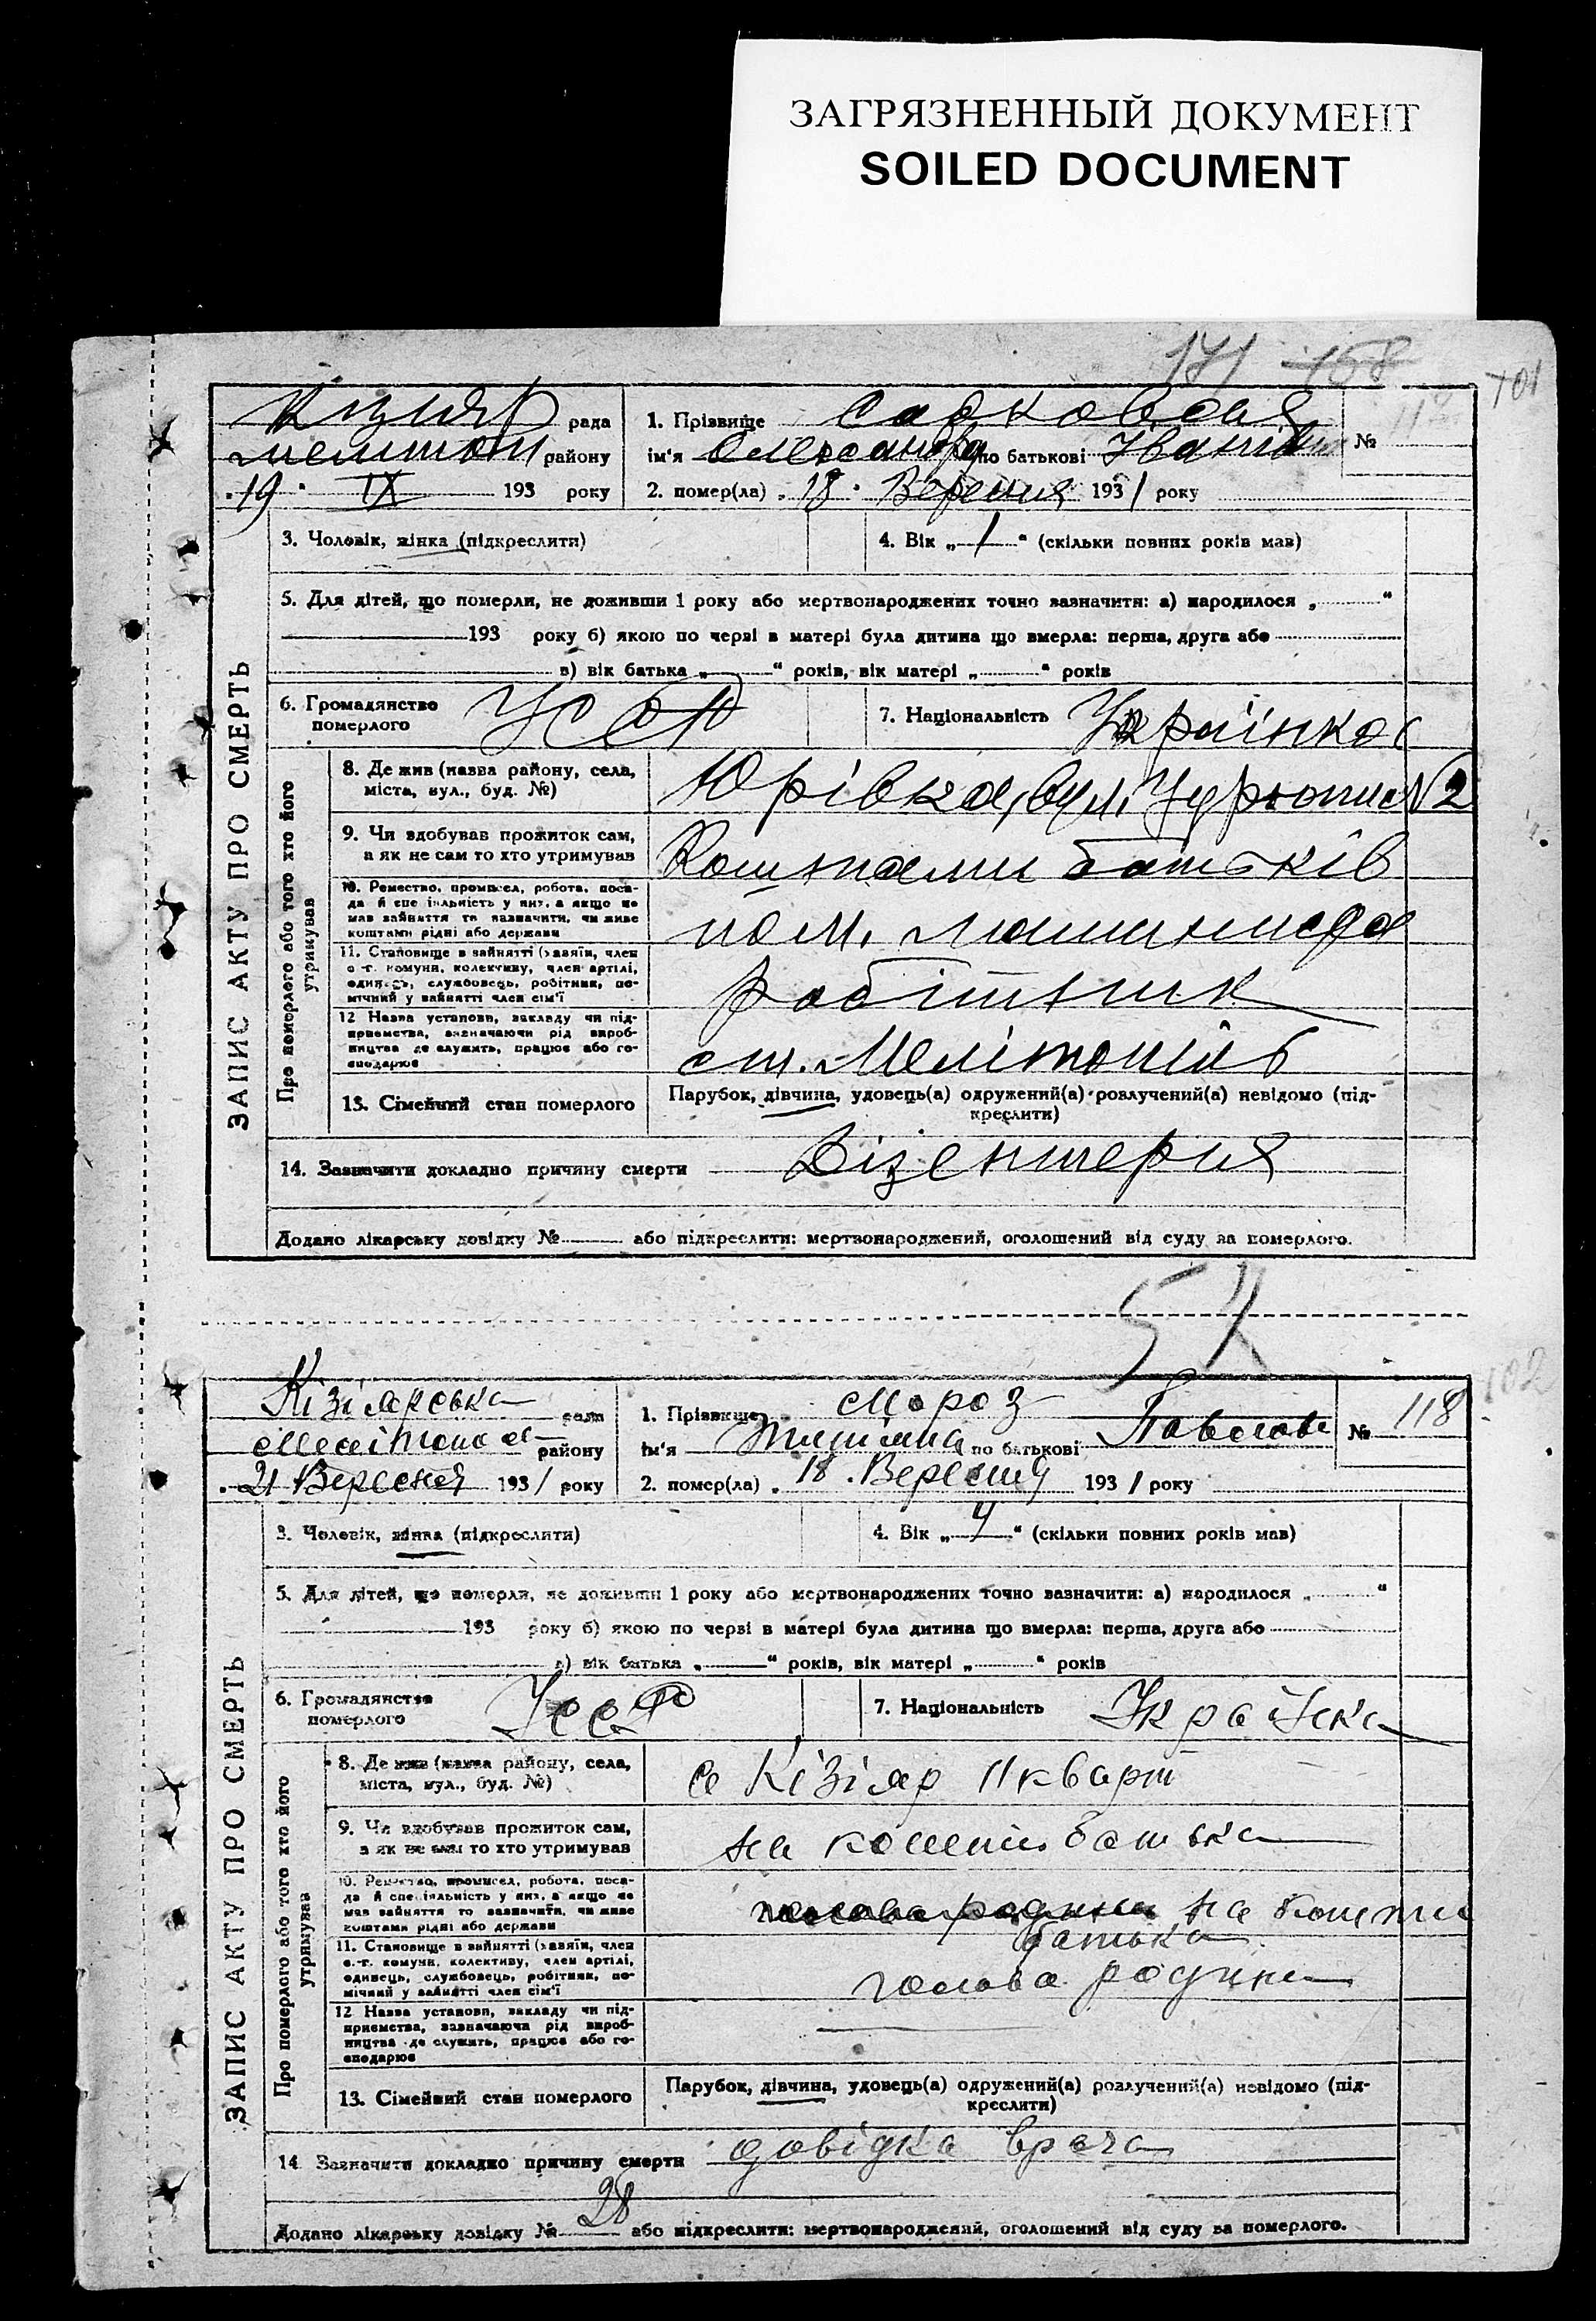 ЗАГРЯЗНЕННЫЙ ДОКУМЕНТ
SOILED DOCUMENT
171 158
101
Кизияр рада
мелитоп району
"19" IX 193 року
1. Прізвище Садковская
ім'я Олександра по батькові Іванівна
№
2. помер(ла) "18" Вересня 1931 року
ЗАПИС АКТУ ПРО СМЕРТЬ
3. Чоловік, жінка (підкреслити)
4. Вік „1“ (скільки повних років мав)
5. Для дітей, що померли, не доживши 1 року або мертвонароджених точно зазначити: а) народилося „ “
193 року б) якою по черзі в матері була дитина що вмерла: перша, друга або
в) вік батька „ “ років, вік матері „ “ років
6. Громадянство померлого УСРР
7. Національність Українка
Про померлого або того хто його утримував
8. Де жив (назва району, села,
міста, вул., буд. №)
Юрівка, вул. №2
9. Чи здобував прожиток сам,
а як не сам то хто утримував
Коштами батьків
10. Ремество, промисел, робота, поса-
да й спеціяльність у них, а якщо не
мав зайняття то зазначити, чи живе
коштами рідні або держави
пом. машиніста
11. Становище в зайнятті (хазяїн, член
с.-г. комуни, колективу, член артілі,
одинець, службовець, робітник, по-
мічний у зайнятті член сім'ї
робітник
12 Назва установи, закладу чи під-
приємства, зазначаючи рід вироб-
ництва де служить, працює або го-
сподарює
ст. Мелітопіль
13. Сімейний стан померлого
Парубок, дівчина, удовець(а) одружений(а) розлучений(а) невідомо (під-
креслити)
14. Зазначити докладно причину смерти Дізентерия
Додано лікарську довідку № або підкреслити: мертвонароджений, оголошений від суду за померлого.
54
102
Кізіярська рада
району
"21 Вересня 1931 року
1. Прізвище Мороз
ім'я по батькові Павлова
№ 118
2. помер(ла) "18. Вересня 1931 року
ЗАПИС АКТУ ПРО СМЕРТЬ
3. Чоловік, жінка (підкреслити)
4. Вік „4“ (скільки повних років мав)
5. Для дітей, що померли, не доживши 1 року або мертвонароджених точно зазначити: а) народилося „ “
193 року б) якою по черзі в матері була дитина що вмерла: перша, друга або
в) вік батька „ “ років, вік матері „ “ років
6. Громадянство померлого УССР
7. Національність Українка
Про померлого або того хто його утримував
8. Де жив (назва району, села,
міста, вул., буд. №)
с Кізіяр II кварт
9. Чи здобував прожиток сам,
а як не сам то хто утримував
на кошти батька
10. Ремество, промисел, робота, поса-
да й спеціяльність у них, а якщо не
мав зайняття то зазначити, чи живе
коштами рідні або держави
голова родини на кошти
батька
11. Становище в зайнятті (хазяїн, член
с.-г. комуни, колективу, член артілі,
одинець, службовець, робітник, по-
мічний у зайнятті член сім'ї
голова родини
12 Назва установи, закладу чи під-
приємства, зазначаючи рід вироб-
ництва де служить, працює або го-
сподарює
13. Сімейний стан померлого
Парубок, дівчина, удовець(а) одружений(а) розлучений(а) невідомо (під-
креслити)
14 Зазначити докладно причину смерти довідка врача
Додано лікарську довідку № 28 або підкреслити: мертвонароджений, оголошений від суду за померлого.